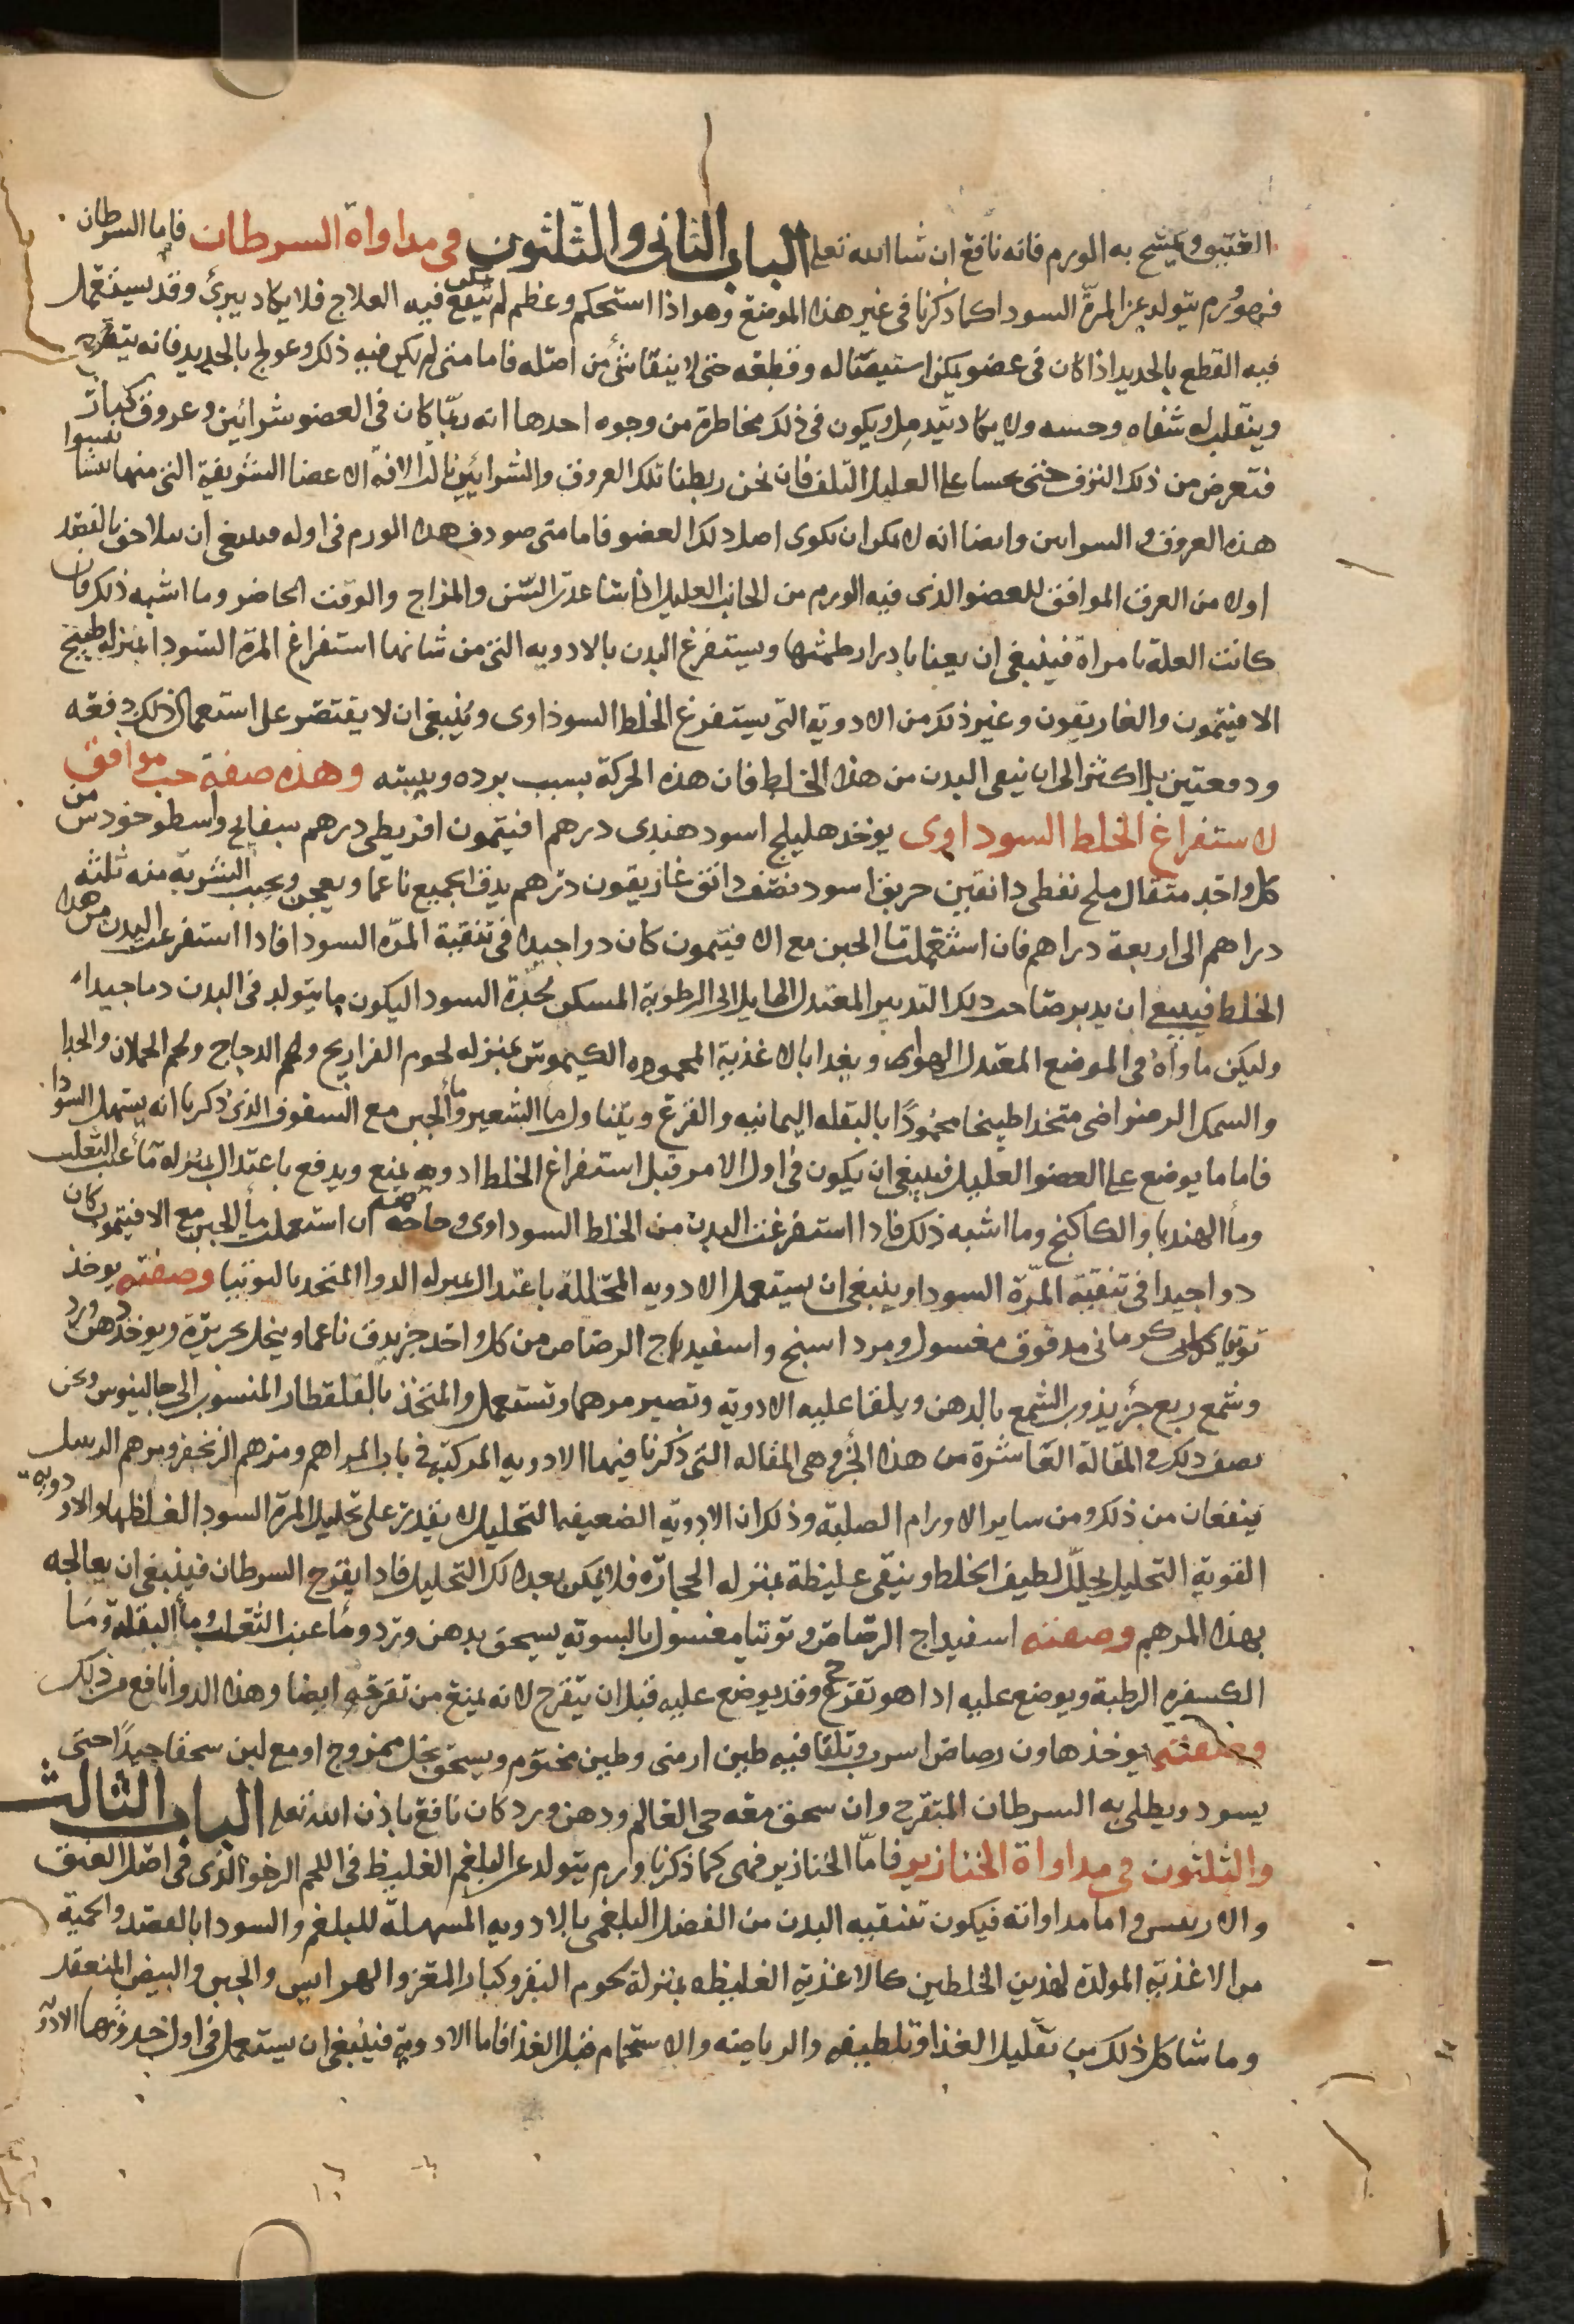 القتبو ويمسح به الورم فانه نافع ان شا الله تعلى الباب الثانى والثلثون فى مداواة السرطان فاما السرطان
فهو ورم يتولد عن المرة السودا كما ذكرنا فى غير هذا الموضع وهو اذا استحكم وعظم لم ينفع فيه العلاج فلا يكاد يبرئ وقد يستعمل
فيه القطع بالحديد اذا كان فى عضو يمكن استيصاله وقطعه حتى لا يبقا شئ من اصله فاما متى لم يكن فيه ذلك وعولج بالحديد فانه يتقرح
وينقلب له شفاه وحسه ولا يكاد يندمل ويكون فى ذلك مخاطرة من وجوه احدها انه ربما كان فى العضو شرائين وعروق كبار
فتعرض من ذلك النزف حتى على العليل التلف فان نحن ربطنا تلك العروق والشرائين نالت الافة الاعضا الشريفة التى منها تنشا
هذه العروق والسراىں واىضا انه لا ىمكں ان ىكوى اصل دلك العضو فاما متى صودف هدا الورم فى اوله فىىىغى ان بالفصد
اولا من العرق الموافق للعضو الذى فيه الورم من الجانب العليل اذا ساعدت السن والمزاج والوقت الحاضر وما اشبه ذلك فان
كانت العلة بامراة فينبغى ان يعنا بادرار طمثها ويستفرغ البدن بالادويه التى من شانها استفراغ المرة السودا بمنزله طبيخ
الافيتمون والغاريقون وغير ذلك من الادوية التى يستفرغ الخلط السوداوى وينبغى ان لا يقتصر على استعمال ذلك دفعه
ودفعتين بل اكثر الى ان ينقى البدن من هذا الخلط فان هذه الحركة بسبب برده ويبسه وهذه صفة حب موافق
لاستفراغ الخلط السوداوى يوخذ هليلج اسود هندى درهم افيتمون اقريطى درهم بسفايج واسطوخودس من
كل واحد مثقال ملح نفطى دانقين خربق اسود نصف دانق غاريقون درهم يدق الجميع ناعما ويعجن ويحبب الشربة منه ثلثه
دراهم الى اربعة دراهم فان استعملت ما الجبن مع الافيتمون كان دوا جيدا فى تنقية المرة السودا فاذا استفرغت البدن من هذا
الخلط فينبغى ان يدبر صاحب ذلك التدبير المعتدل المايل الى الرطوبة المسكن لحدة السودا ليكون ما يتولد فى البدن دما جيدا
وليكن ماواه فى الموضع المعتدل الهواى ويغدا بالاغذية المحموده الكيموس بمنزله لحوم الفراريج ولحم الدجاج ولحم الحملان والجدا
والسمك الرضراضى متخذا طبيخا محمودا بالبقله اليمانيه والقرع ويتناول ما الشعير وما الجبن مع السفوف الذى ذكرنا انه يسهل السودا
فاما ما يوضع على العضو العليل فينبغى ان يكون فى اول الامر قبل استفراغ الخلط ادويه تمنع ويدفع باعتدال بمنزله ما عنب الثعلب
وما الهندبا والكاكنج وما اشبه ذلك فاذا استفرغت البدن من الخلط السوداوى وخاصه ان استعملت ما الجبن مع الافيتمون كان
دوا جيدا فى تنقية المرة السودا وينبغى ان يستعمل الادويه المحللة باعتدال بمنزله الدوا المتخد بالتوتيا وصفته يوخذ
توتيا كرمانى مدقوق مغسول ومرداسنج واسفيداج الرصاص من كل واحد جز يدق ناعما وينخل بحريرة ويوخذ دهن ورد
وشمع ربع جز يذوب الشمع بالدهن ويلقا عليه الادوية وتصير مرهما وتستعمل والمتخذ بالقلقطار المنسوب الى جالينوس ونحن
نصف ذلك فى المقالة العاشرة من هذا الجز وهى المقاله التى ذكرنا فيها الادويه المركبة فى باب المراهم ومرهم الزنجفر ومرهم الرسل
ينفعان من ذلك ومن ساير الاورام الصلبة وذلك ان الادوية الضعيفه التحليل لا يقدر على تحليل المرة السودا لغلظها والادويه
القوية التحليل يحلل لطيف الخلط ويبقى غليظة بمنزله الحجارة فلا يمكن بعد ذلك التحليل فاذا يقرح السرطان فينبغى ان يعالجه
بهذا المرهم وصفته اسفيداج الرصاص وتوتيا مغسول بالسوته يسحق بدهن ورد وما عنب الثعلب وما البقلة وما
الكسفره الرطبة ويوضع عليه اذا هو تقرح وقد يوضع عليه قبل ان يتقرح لانه يمنع من تقرحه ايضا وهذا الدوا نافع من ذلك
وصفته يوخذ هاون رصاص اسرب ويلقا فيه طين ارمنى وطين مختوم ويسحق بخل ممزوج او مع لبن سحقا جيدا حتى
يسود ويطلى به السرطان المتقرح وان سحق معه حى العالم ودهن ورد كان نافع باذن الله تعلى الباب الثالث
والثلثون فى مداواة الخنازير فاما الخنازير فهى كما ذكرنا وارم يتولد عن البلغم الغليظ فى اللحم الرخو الذى فى اصل العنق
والاربىىں واما مداواته فيكون تنقيه البدن من الفضل البلغمى بالادويه المسهلة للبلغم والسودا بالفصد والحمية
من الاغذية المولدة لهذين الخلطين كالاغذية الغليظه بمنزلة لحوم البقر وكبار المعز والهرايس والجبن والبيض المنعقد
وما شاكل ذلك من تقليل الغذا وتلطيفه والرياضه والاستحمام قبل الغذا فاما الادوية فينبغى ان يستعمل فى اول حدوثها الادو